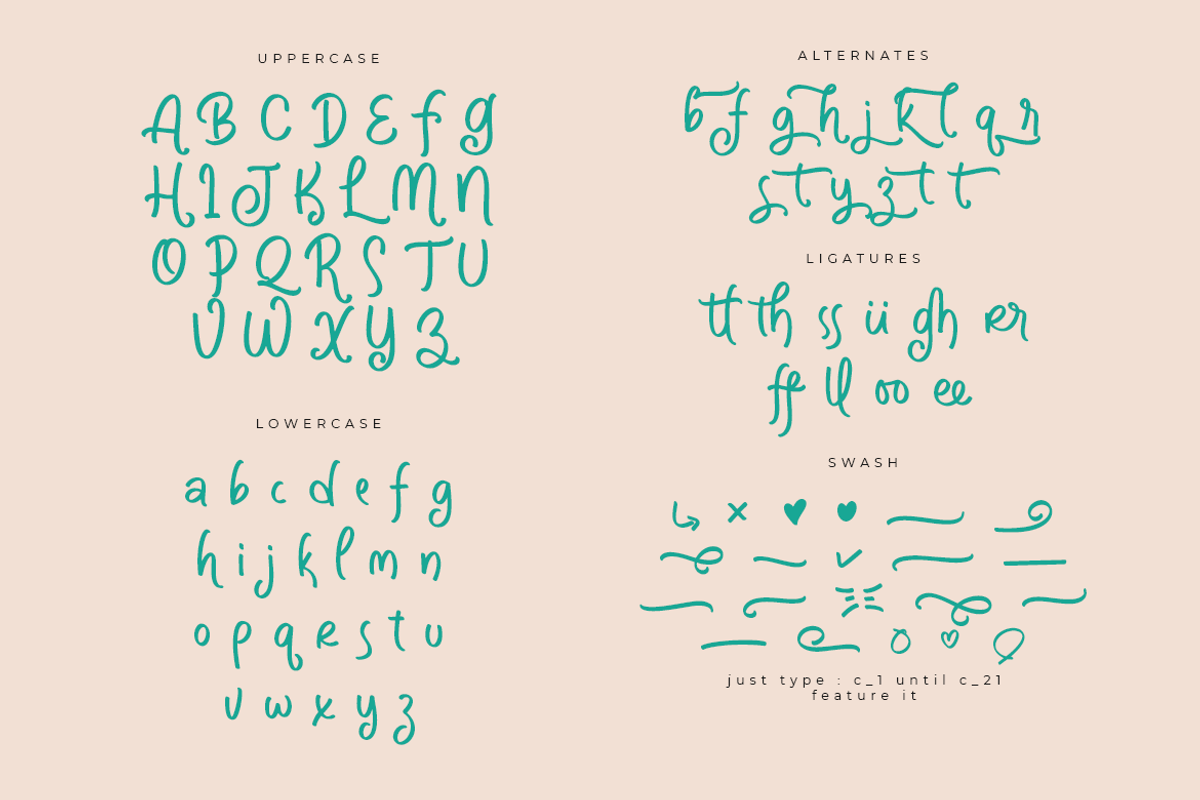 UPPERCASE
A B C D E f g
H I J K L M N
O P Q R S T U
V W X Y Z
LOWERCASE
a b c d e f g
h i j k l m n
o p q r s t u
v w x y z
ALTERNATES
b f g h j k l q r
s t y z t t
LIGATURES
tt th ss ii gh er
ff ll oo ee
SWASH
just type : c_1 until c_21
feature it